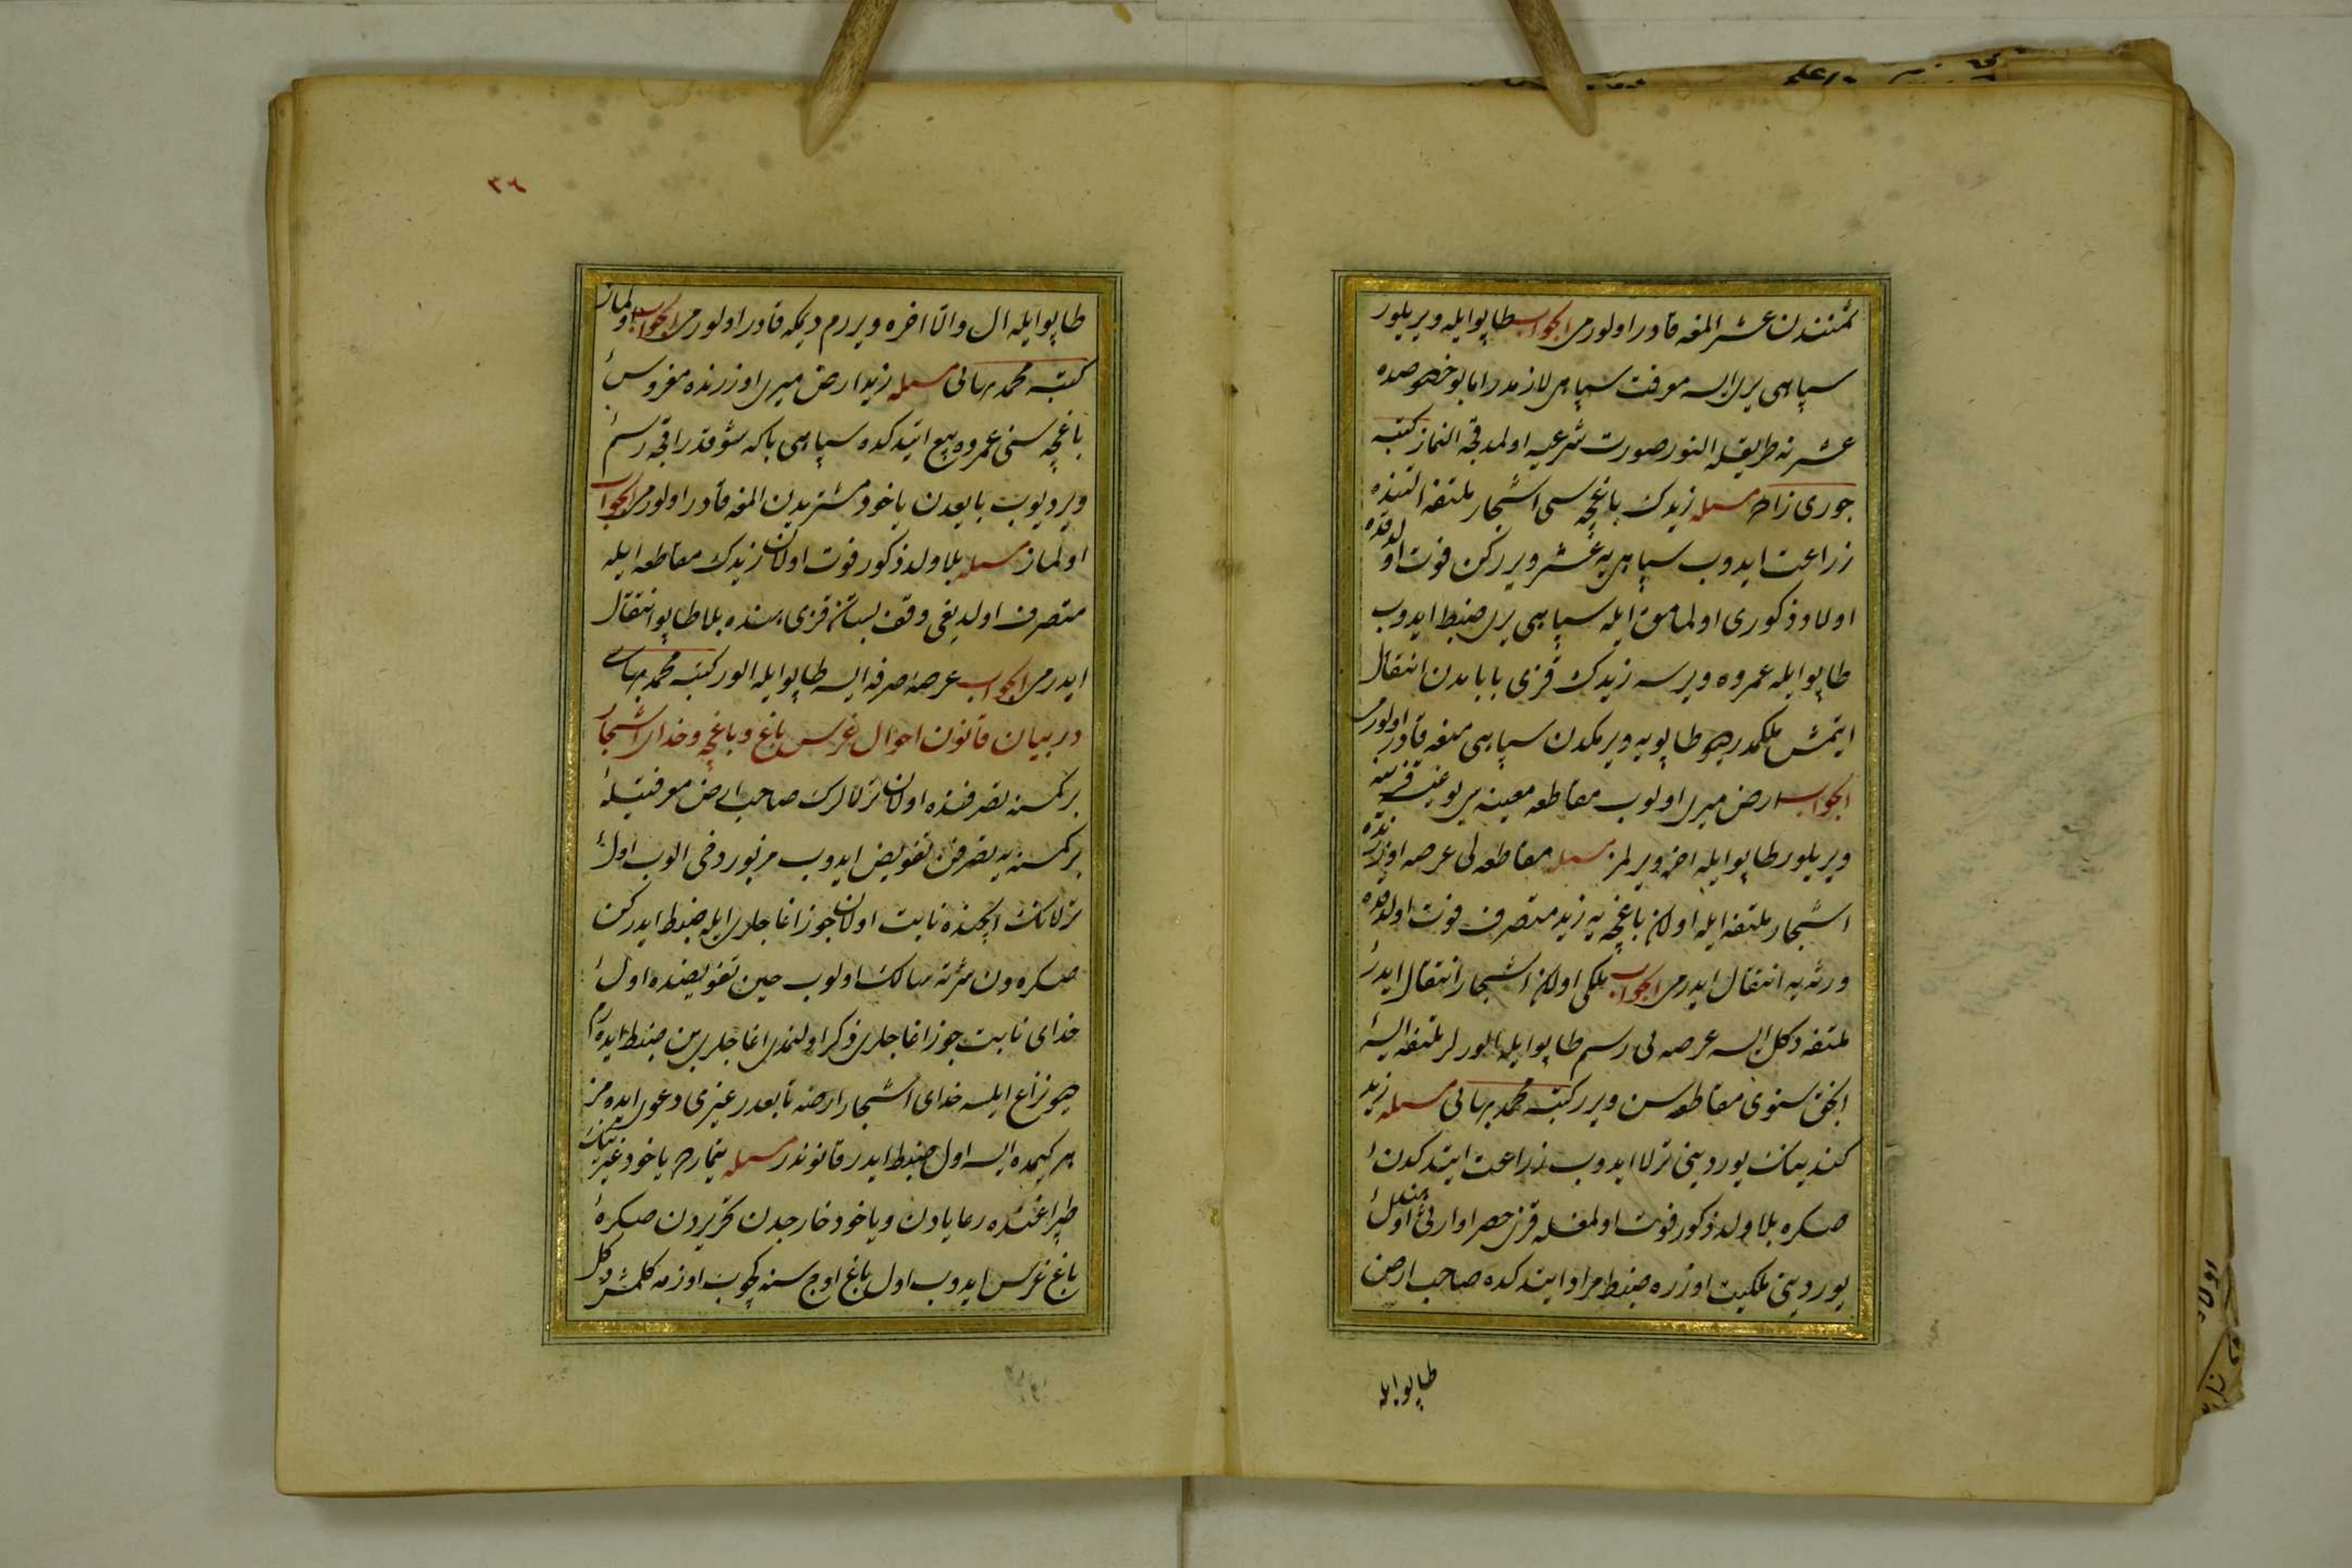 ثمنندن عشر المغه قادر اولورمی الجواب طاپو ایله ویریلور
سپاهی یری ایسه معرفت سپاهی لازمدر اما بو خصوصده
عشر نه طریقله النور صورت شرعیه اولمدقجه النماز کتبه
جوری زاده مسئله زیدک باغچه سی اشجار ملتفه التنده
زراعت ایدوب سپاهی یه عشر ویررکن فوت اولدقده
اولاد ذکوری اولمامق ایله سپاهی یری ضبط ایدوب
طاپو ایله عمروه ویرسه زیدک قزی بابامدن انتقال
ایتمش ملکمدر دیو طاپویه ویرمکدن سپاهی منعه قادر اولورمی
الجواب ارض میری اولوب مقاطعه معینه سی یوغیسه قزینه
ویریلور طاپو ایله اخره ویرلمز مسئله مقاطعه لی عرصه اوزرنده
اشجار ملتفه ایله اولان باغچه یه زید متصرف فوت اولدقده
ورثه یه انتقال ایدرمی الجواب ملکی اولان اشجار انتقال ایدر
ملتفه دکل ایسه عرصه لی رسم طاپو ایله الورلر ملتفه ایسه
انجق سنوی مقاطعه سن ویرر کتبه محمد بهائی مسئله زید
کندینک یوردینی ترلا ایدوب زراعت ایتدکدن
صکره بلا ولد ذکور فوت اولمغله قزی حصر اوارثی اول
یوردینی ملکیت اوزره ضبط مراد ایتدکده صاحب ارض
طاپو ایله
٣٤
طاپو ایله ال والا اخره ویررم دیمکه قادر اولورمی الجواب اولماز
کتبه محمد بهائی مسئله زید ارض میری اوزرنده مغروس
باغچه سنی عمروه بیع ایتدکده سپاهی بکا شو قدر اقچه رسم
ویر دیوب بایعدن یاخود مشتریدن المغه قادر اولورمی الجواب
اولماز مسئله بلا ولد ذکور فوت اولان زیدک مقاطعه ایله
متصرف اولدیغی وقف بستان قزی هنده بلا طاپو انتقال
ایدرمی الجواب عرصه صرفه ایسه طاپو ایله الور کتبه محمد بهائی
در بیان قانون احوال غرس باغ و باغچه و خدای اشجار
بر کمسنه تصرفنده اولان ترلالرک صاحب ارض معرفتیله
بر کمسنه یه تصرفن تفویض ایدوب مزبور دخی الوب اول
ترلانک ایچنده نابت اولان جوز اغاجلری ایله ضبط ایدرکن
صکره دن مرتبه مالک اولوب حین تفویضنده اول
خدای نابت جوز اغاجلری ذکر اولنمدی اغاجلری بن ضبط ایدرم
دیو نزاع ایلسه خدای اشجار ارضه تابعدر غیری دعوی ایده مز
یر کیمده ایسه اول ضبط ایدر قانوندر مسئله تیمارم یاخود غیرینک
طپراغنده رعایادن ویاخود خارجدن تحریردن صکره
باغ غرس ایدوب اول باغ اوچ سنه کچوب اوزمه کلمش دکل